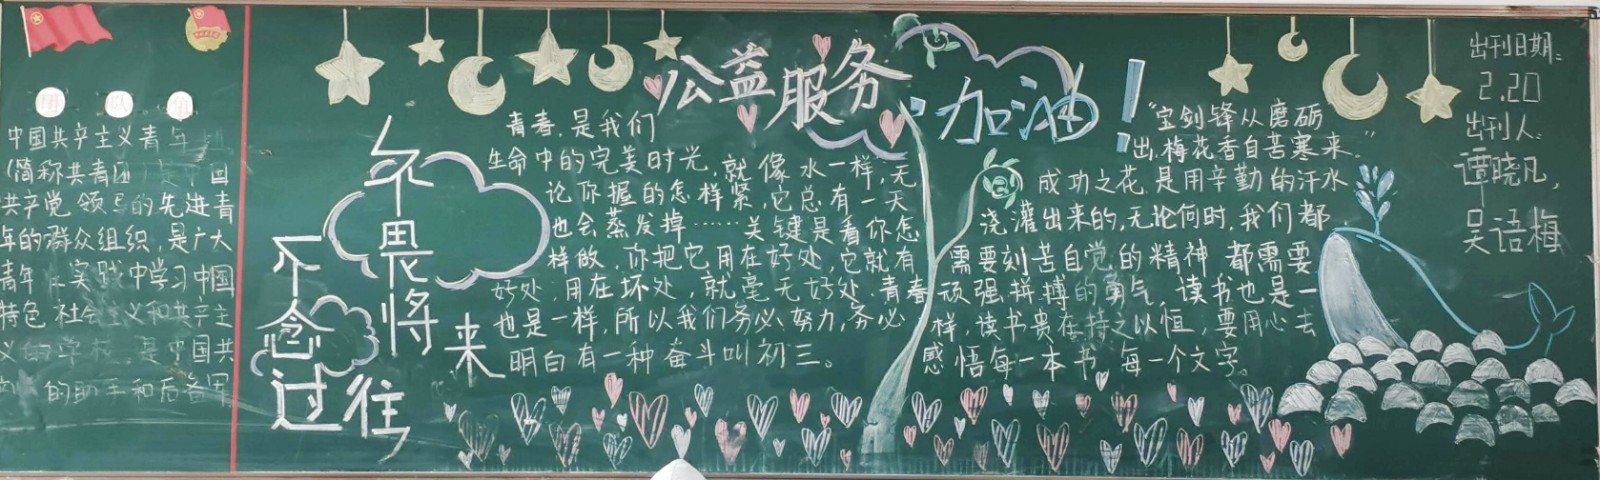 团 队 角
中国共产主义青年团
(简称共青团)是中国
共产党领导的先进青
年的群众组织,是广大
青年在实践中学习中国
特色社会主义和共产主
义的学校,是中国共
的助手和后备军
不念过往
不畏将来
公益服务
加油!
青春,是我们
生命中的完美时光,就像水一样,无
论你握的怎样紧,它总有一天
也会蒸发掉……关键是看你怎
样做,你把它用在好处,它就有
好处,用在坏处,就毫无好处,青春
也是一样,所以我们务必努力,务必
明白有一种奋斗叫初三。
“宝剑锋从磨砺
出,梅花香自苦寒来”
成功之花,是用辛勤的汗水
浇灌出来的,无论何时,我们都
需要刻苦自觉的精神,都需要
顽强拼搏的勇气,读书也是一
样,读书贵在持之以恒,要用心去
感悟每一本书,每一个文字。
出刊日期:
2.20
出刊人:
谭晓凡,
吴语梅